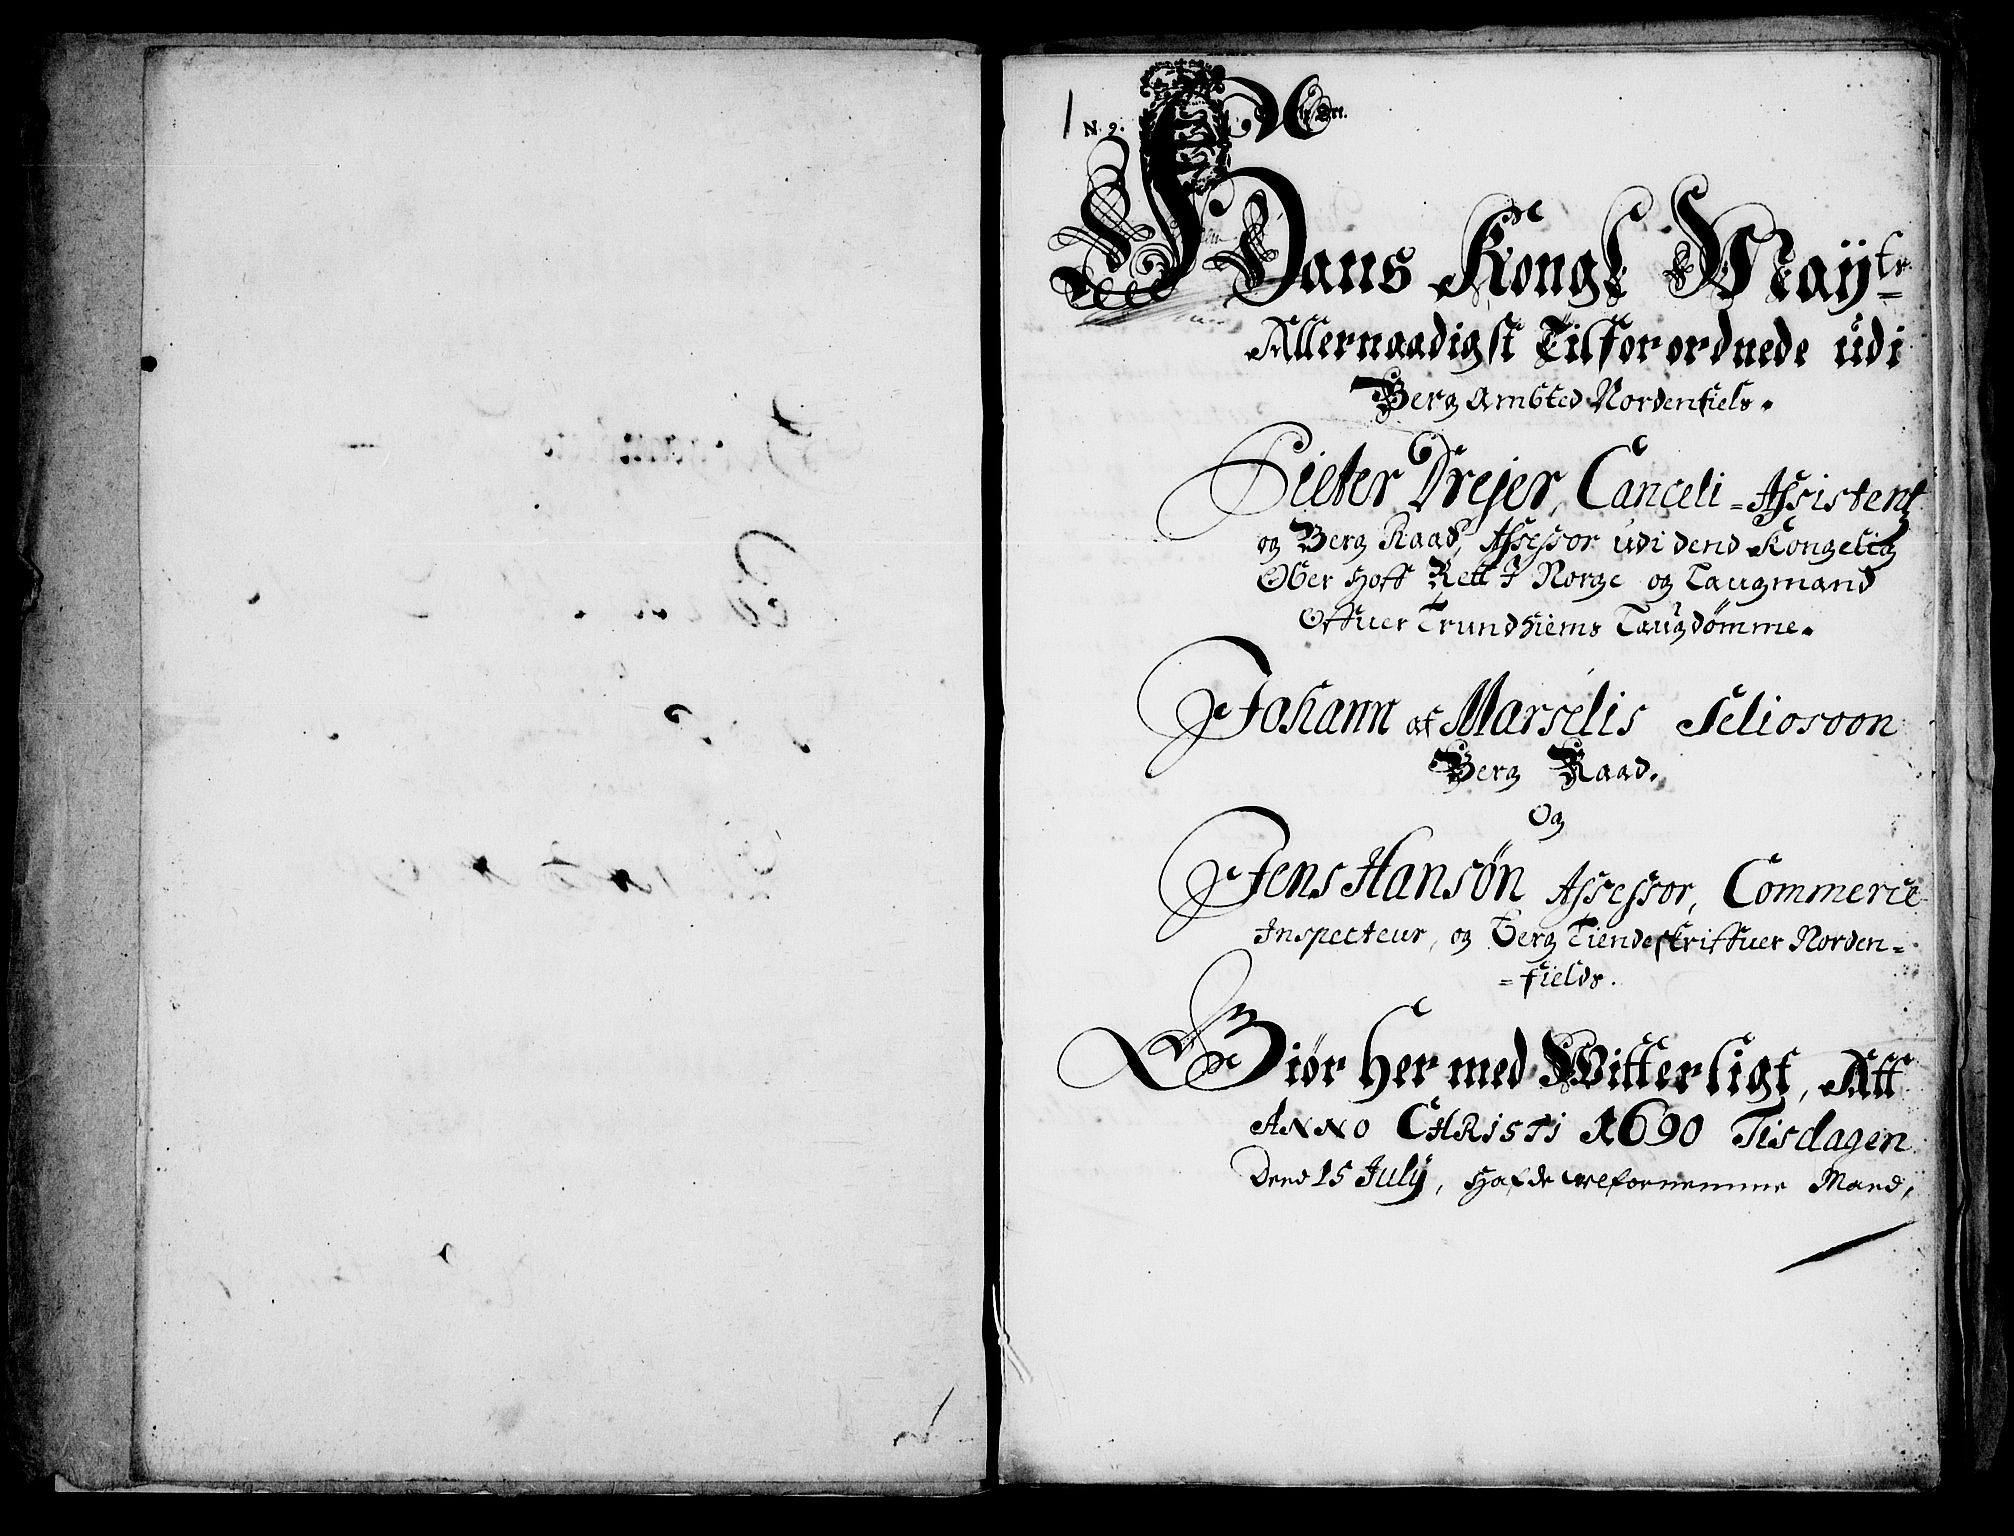 1 N. 9.
Hans Kongl Maÿtz
Allernaadigst Tilforordnede udi
Berg Ambted Nordenfiels.
Pieter Dreÿer, Canceli-Assistent
og Berg Raad, Assessor udi dend Kongelig
Ober Hoff Rett I Norge og Laugmand
Offuer Trundhiems Laugdömme.
Johann af Marselis Seliosoon
Berg Raad.
Og
Jens Hansøn Assessor, Commerce
Inspecteur, og Berg Tiendeskriffuer Norden=
=fields.
Giør Her med Witterligt, Att
ANNO CHRISTI 1690 Tisdagen
Dend 15 Julÿ, Hafde welfornemme Mand,